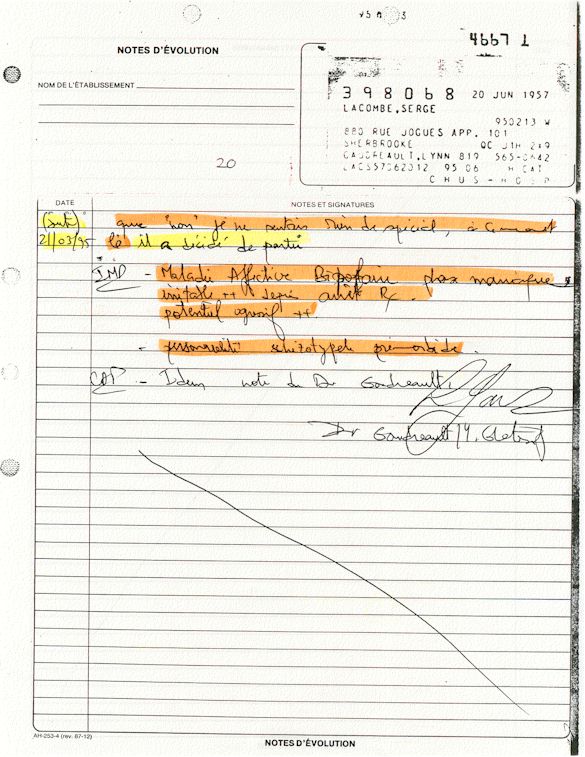 4667 1
NOTES D'ÉVOLUTION
NOM DE L'ÉTABLISSEMENT
398068 20 JUN 1957
LACOMBE,SERGE
950213 W
880 RUE JOGUES APP. 101
SHERBROOKE QC J1H 2X9
GAUDREAULT,LYNN 819 565-0642
LACS57062012 95 06 H CAT
CHUS - HGSP
20
DATE NOTES ET SIGNATURES
(suite) que "non" je ne sentais rien de spécial, à ce moment
21/03/95 là il a décidé de partir
IMP - Maladie Affective Bipolaire phase maniaque
irritable ++ arrêt Rx.
potentiel agressif ++
- personnalité schizotypale pré-morbide.
- Idem note du Dr Gaudreault
Dr Gaudreault / M.
AH-253-4 (rev. 87-12)
NOTES D'ÉVOLUTION